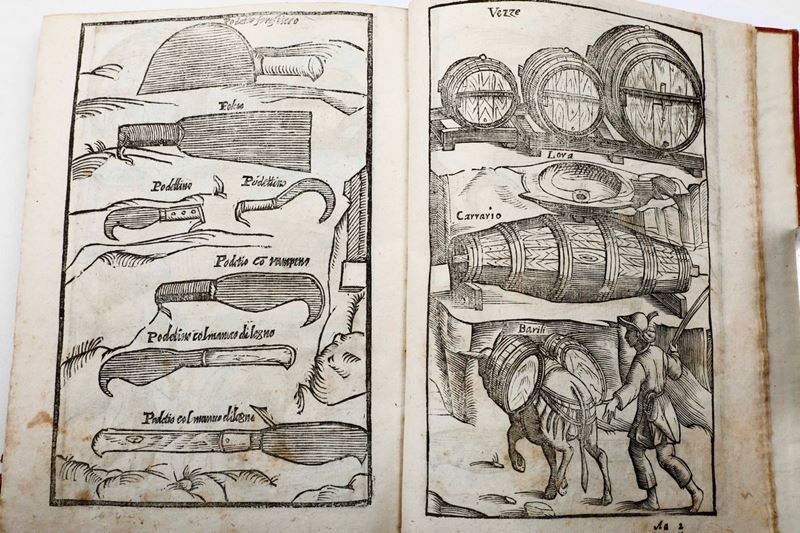 Podetto forestiero
Poleto
Podettino
Podettino
Podetto cō rampeno
Podetino col manuco di legno
Podetto col manuco di legno
Vezze
Lora
Carrario
Barili
Aa 2